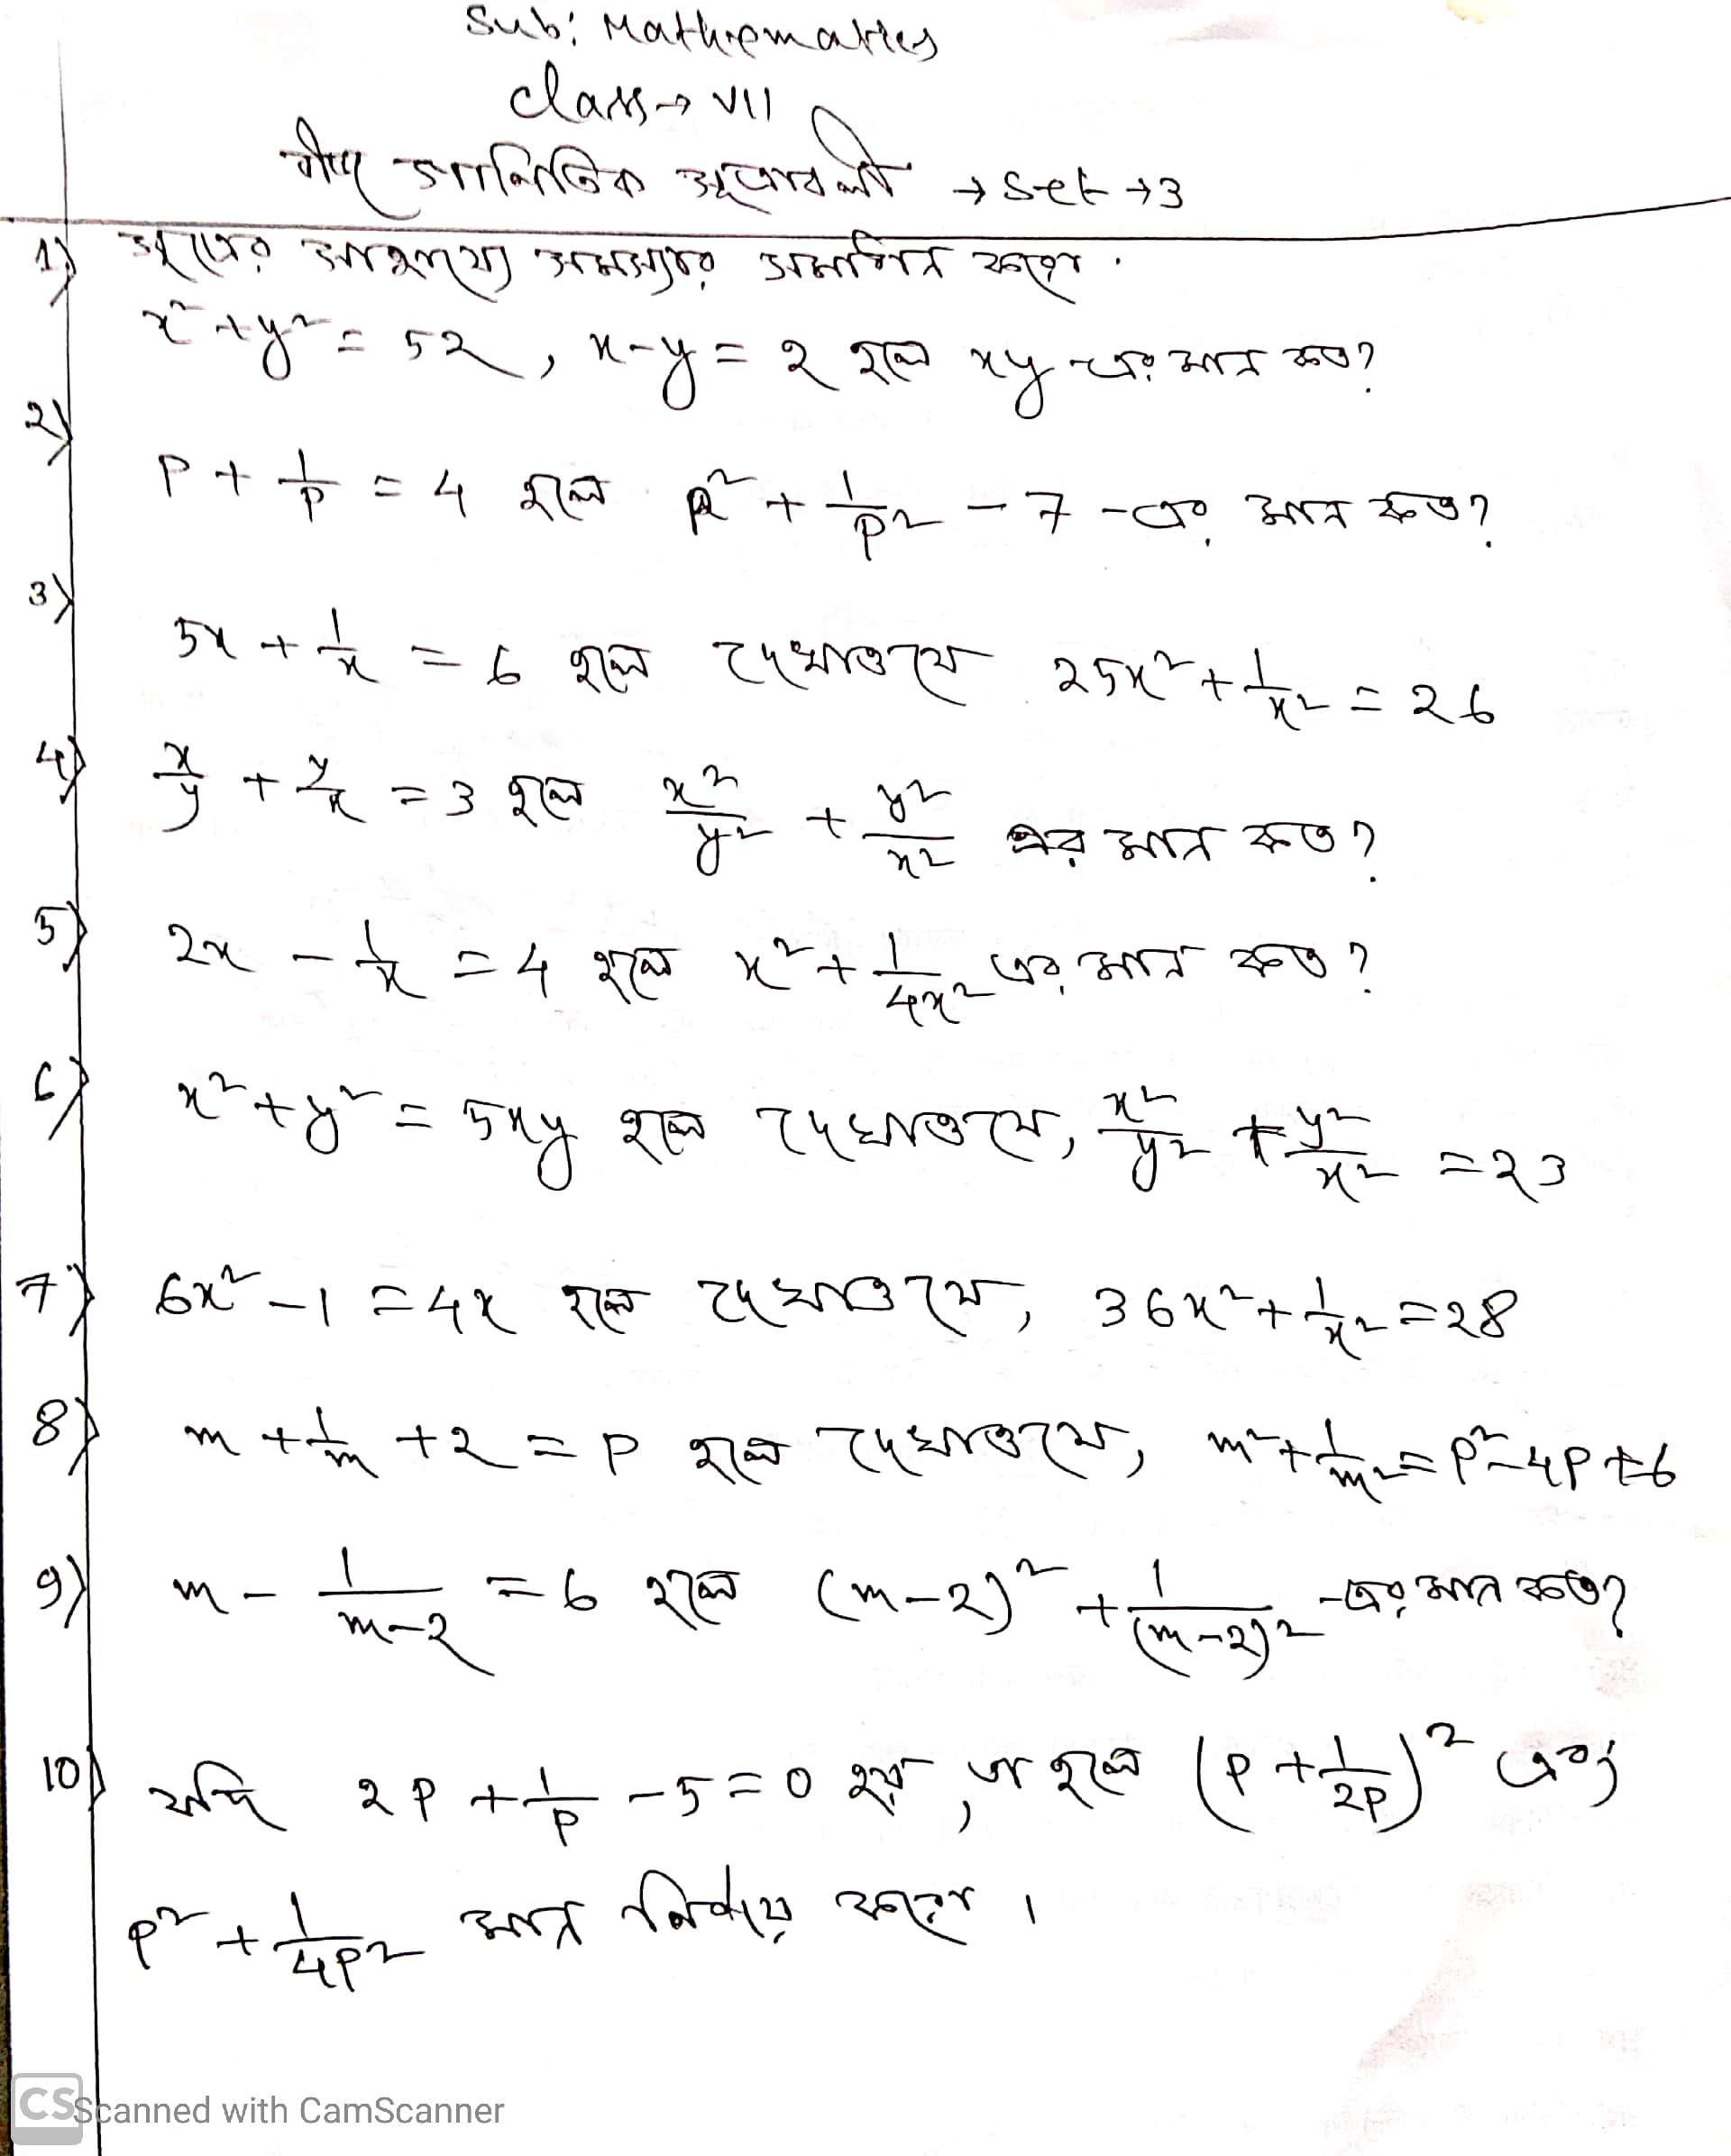 Sub: Mathematics
class → VII
বীজ গাণিতিক সূত্রাবলী → Set → 3
1) সূত্রের সাহায্যে সমস্যার সমাধান করো.
x² + y² = 52, x - y = 2 হলে xy -এর মান কত?
2) P + 1/P = 4 হলে p² + 1/p² - 7 -এর মান কত?
3) 5x + 1/x = 6 হলে দেখাও যে 25x² + 1/x² = 26
4) x/y + y/x = 3 হলে x²/y² + y²/x² এর মান কত?
5) 2x - 1/x = 4 হলে x² + 1/4x² এর মান কত?
6) x² + y² = 5xy হলে দেখাও যে, x²/y² + y²/x² = 23
7) 6x² - 1 = 4x হলে দেখাও যে, 36x² + 1/x² = 28
8) m + 1/m + 2 = P হলে দেখাও যে, m² + 1/m² = P² - 4P + 6
9) m - 1/(m-2) = 6 হলে (m-2)² + 1/(m-2)² -এর মান কত?
10) যদি 2P + 1/P - 5 = 0 হয়, তা হলে (P + 1/2P)² এবং
P² + 1/4P² মান নির্ণয় করো।
CS Scanned with CamScanner